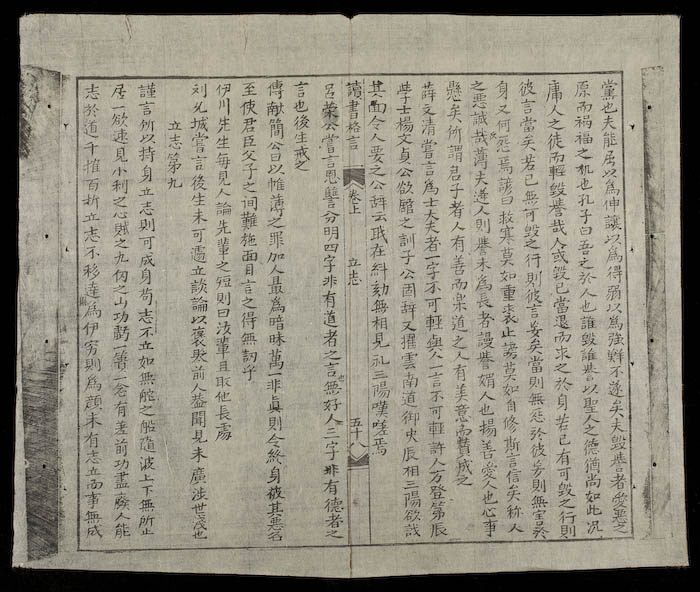 黨也夫能屈以爲伸讓以爲得弱以爲強鮮不遂矣夫毀譽者愛惡之
原而禍福之机也孔子曰吾之於人也誰毀誰譽以聖人之德猶尚如此况
庸人之徒而輕毀譽哉人或毀已當退而求之於身若已有可毀之行則
彼言當矣若已無可毀之行則彼言妄矣當則無怨於彼妄則無害於
身又何怨焉諺曰救寒莫如重裘止謗莫如自修斯言信矣称人
之惡誠哉薄夫道人則譽未爲長者謾譽媚人也揚善愛人也心事
懸矣所謂君子者人有善而樂道之人有美意而贊成之
薛文清嘗言爲士大夫者一字不可輕與人一言不可輕許人方登第辰
學士楊文貞公欲館之訓子公固辞又擢雲南道御史辰相三陽欲識
其面令人要之公辞云耺在糾劾無相見礼三陽嘆嗟焉
讀書格言 卷上 立志 五十八
呂榮公嘗言恩讐分明四字非有道者之言也無好人三字非有德者之
言也後生戒之
傳献簡公曰以帷薄之罪加人最爲暗昧萬一非眞則令終身被其惡名
至使君臣父子之间難施面目言之得無訒乎
伊川先生每見人論先輩之短則曰汝輩且取他長處
刘元城嘗言後生未可遽立談論以褒貶前人蓋聞見未廣涉世淺也
立志第九
謹言所以持身立志則可成身苟志不立如無舵之船隨波上下無所止
居一欲速見小利之心賊之九仞之山功虧一簣一念有差前功盡廢人能
志於道千摧百折立志不移達爲伊穷則爲顔未有志立而事無成